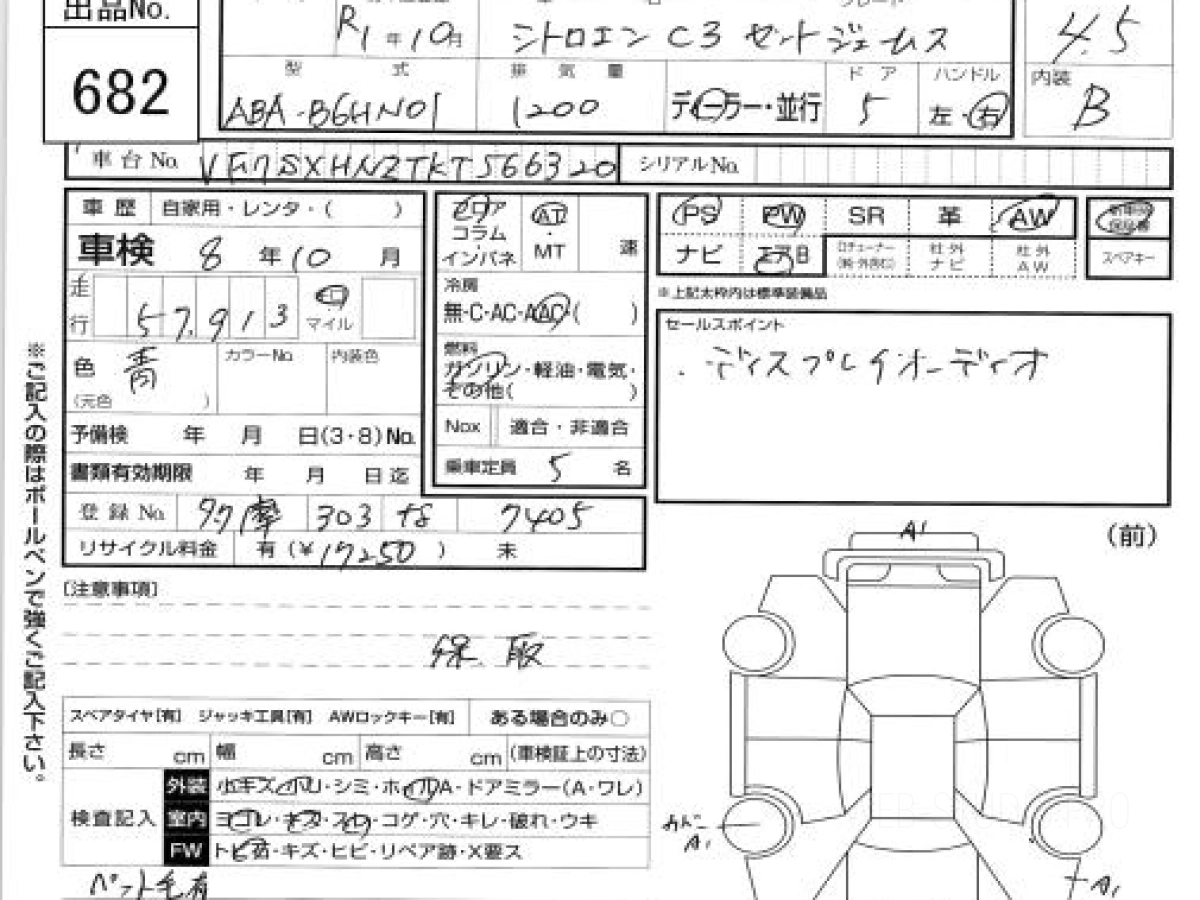 出品No.
682
R1年10月
シトロエン C3 セントジェームス
4.5
型 式
排 気 量
ドア
ハンドル
内装
ABA-B6HN01
1200
ディーラー・並行
5
左・右
B
車台No.
VF7SXHNZTKT566320
シリアルNo.
車歴 自家用・レンタ・( )
車検 8年10月
走行 57,913 マイル
色 青
(元色 )
カラーNo.
内装色
予備検 年 月 日(3・8)No.
書類有効期限 年 月 日迄
登録No. 303 な 7405
リサイクル料金 有(¥17250) 未
フロア
コラム
インパネ
AT
・
MT
速
冷房
無・C・AC・AAC・( )
燃料
ガソリン・軽油・電気・
その他( )
Nox 適合・非適合
乗車定員 5 名
PS PW SR 革 AW
ナビ エアB
社外ナビ
社外AW
保証書
スペアキー
※上記太枠内は標準装備品
セールスポイント
・ディスプレイオーディオ
※ご記入の際はボールペンで強くご記入下さい。
[注意事項]
保 取
スペアタイヤ[有] ジャッキ工具[有] AWロックキー[有] ある場合のみ○
長さ cm 幅 cm 高さ cm (車検証上の寸法)
検査記入
外装 小キズ・小凹・シミ・ホイルA・ドアミラー(A・ワレ)
室内 ヨゴレ・キズ・スレ・コゲ・穴・キレ・破れ・ウキ
FW トビ石・キズ・ヒビ・リペア跡・X要ス
ペット毛有
(前)
A1
A1
A1